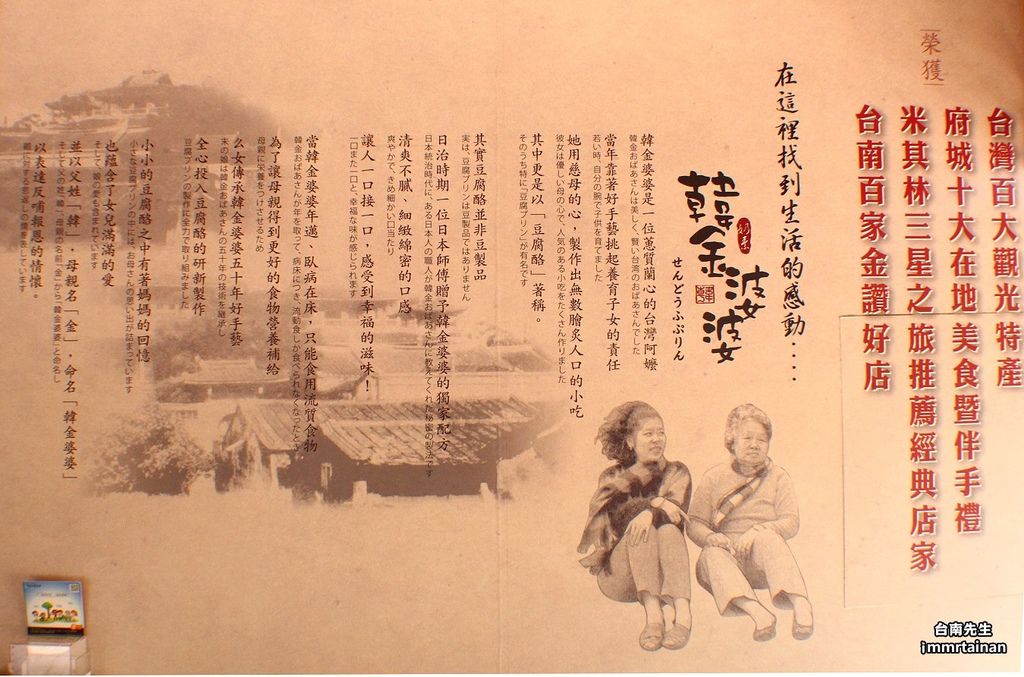 榮獲
台灣百大觀光特產
府城十大在地美食暨伴手禮
米其林三星之旅推薦經典店家
台南百家金讚好店
在這裡找到生活的感動....
韓金婆婆
せんどうふぷりん
韓金婆婆是一位蕙質蘭心的台灣阿嬤
韓金おばあさんは美しく、賢い台湾のおばあさんでした
當年靠著好手藝挑起養育子女的責任
若い時、自分の腕で子供を育てました
她用慈母的心，製作出無數膾炙人口的小吃
彼女は優しい母の心で、人気のある小吃をたくさん作りました
其中更是以「豆腐酪」著稱。
そのうち特に「豆腐プリン」が有名です
其實豆腐酪並非豆製品
実は、豆腐プリンは豆製品ではありません
日治時期一位日本師傅贈予韓金婆婆的獨家配方
日本統治時代に、ある日本人の職人が韓金おばあさんに教えてくれた秘密の製法です
清爽不膩、細緻綿密的口感
爽やかで、きめ細かい口当たり
讓人一口接一口，感受到幸福的滋味！
一口また一口と、幸福な味が感じられます
當韓金婆婆年邁、臥病在床，只能食用流質食物
韓金おばあさんが年を取って、病床につき、流動食しか食べられなくなったとき
為了讓母親得到更好的食物營養補給
母親に栄養をつけさせるため
么女傳承韓金婆婆五十年好手藝
末の娘は韓金おばあさんの五十年の技術を継承し
全心投入豆腐酪的研新製作
豆腐プリンの製作に全力で取り組みました
小小的豆腐酪之中有著媽媽的回憶
小さな豆腐プリンの中には、お母さんの思い出が詰まっています
也蘊含了女兒滿滿的愛
そして、娘の愛も含まれています
並以父姓「韓」，母親名「金」，命名「韓金婆婆」
そして父の姓「韓」、母親の名前「金」から「韓金婆婆」と命名し
以表達反哺報恩的情懷。
親に対する恩返しの情を表しています
台南先生
immrtainan